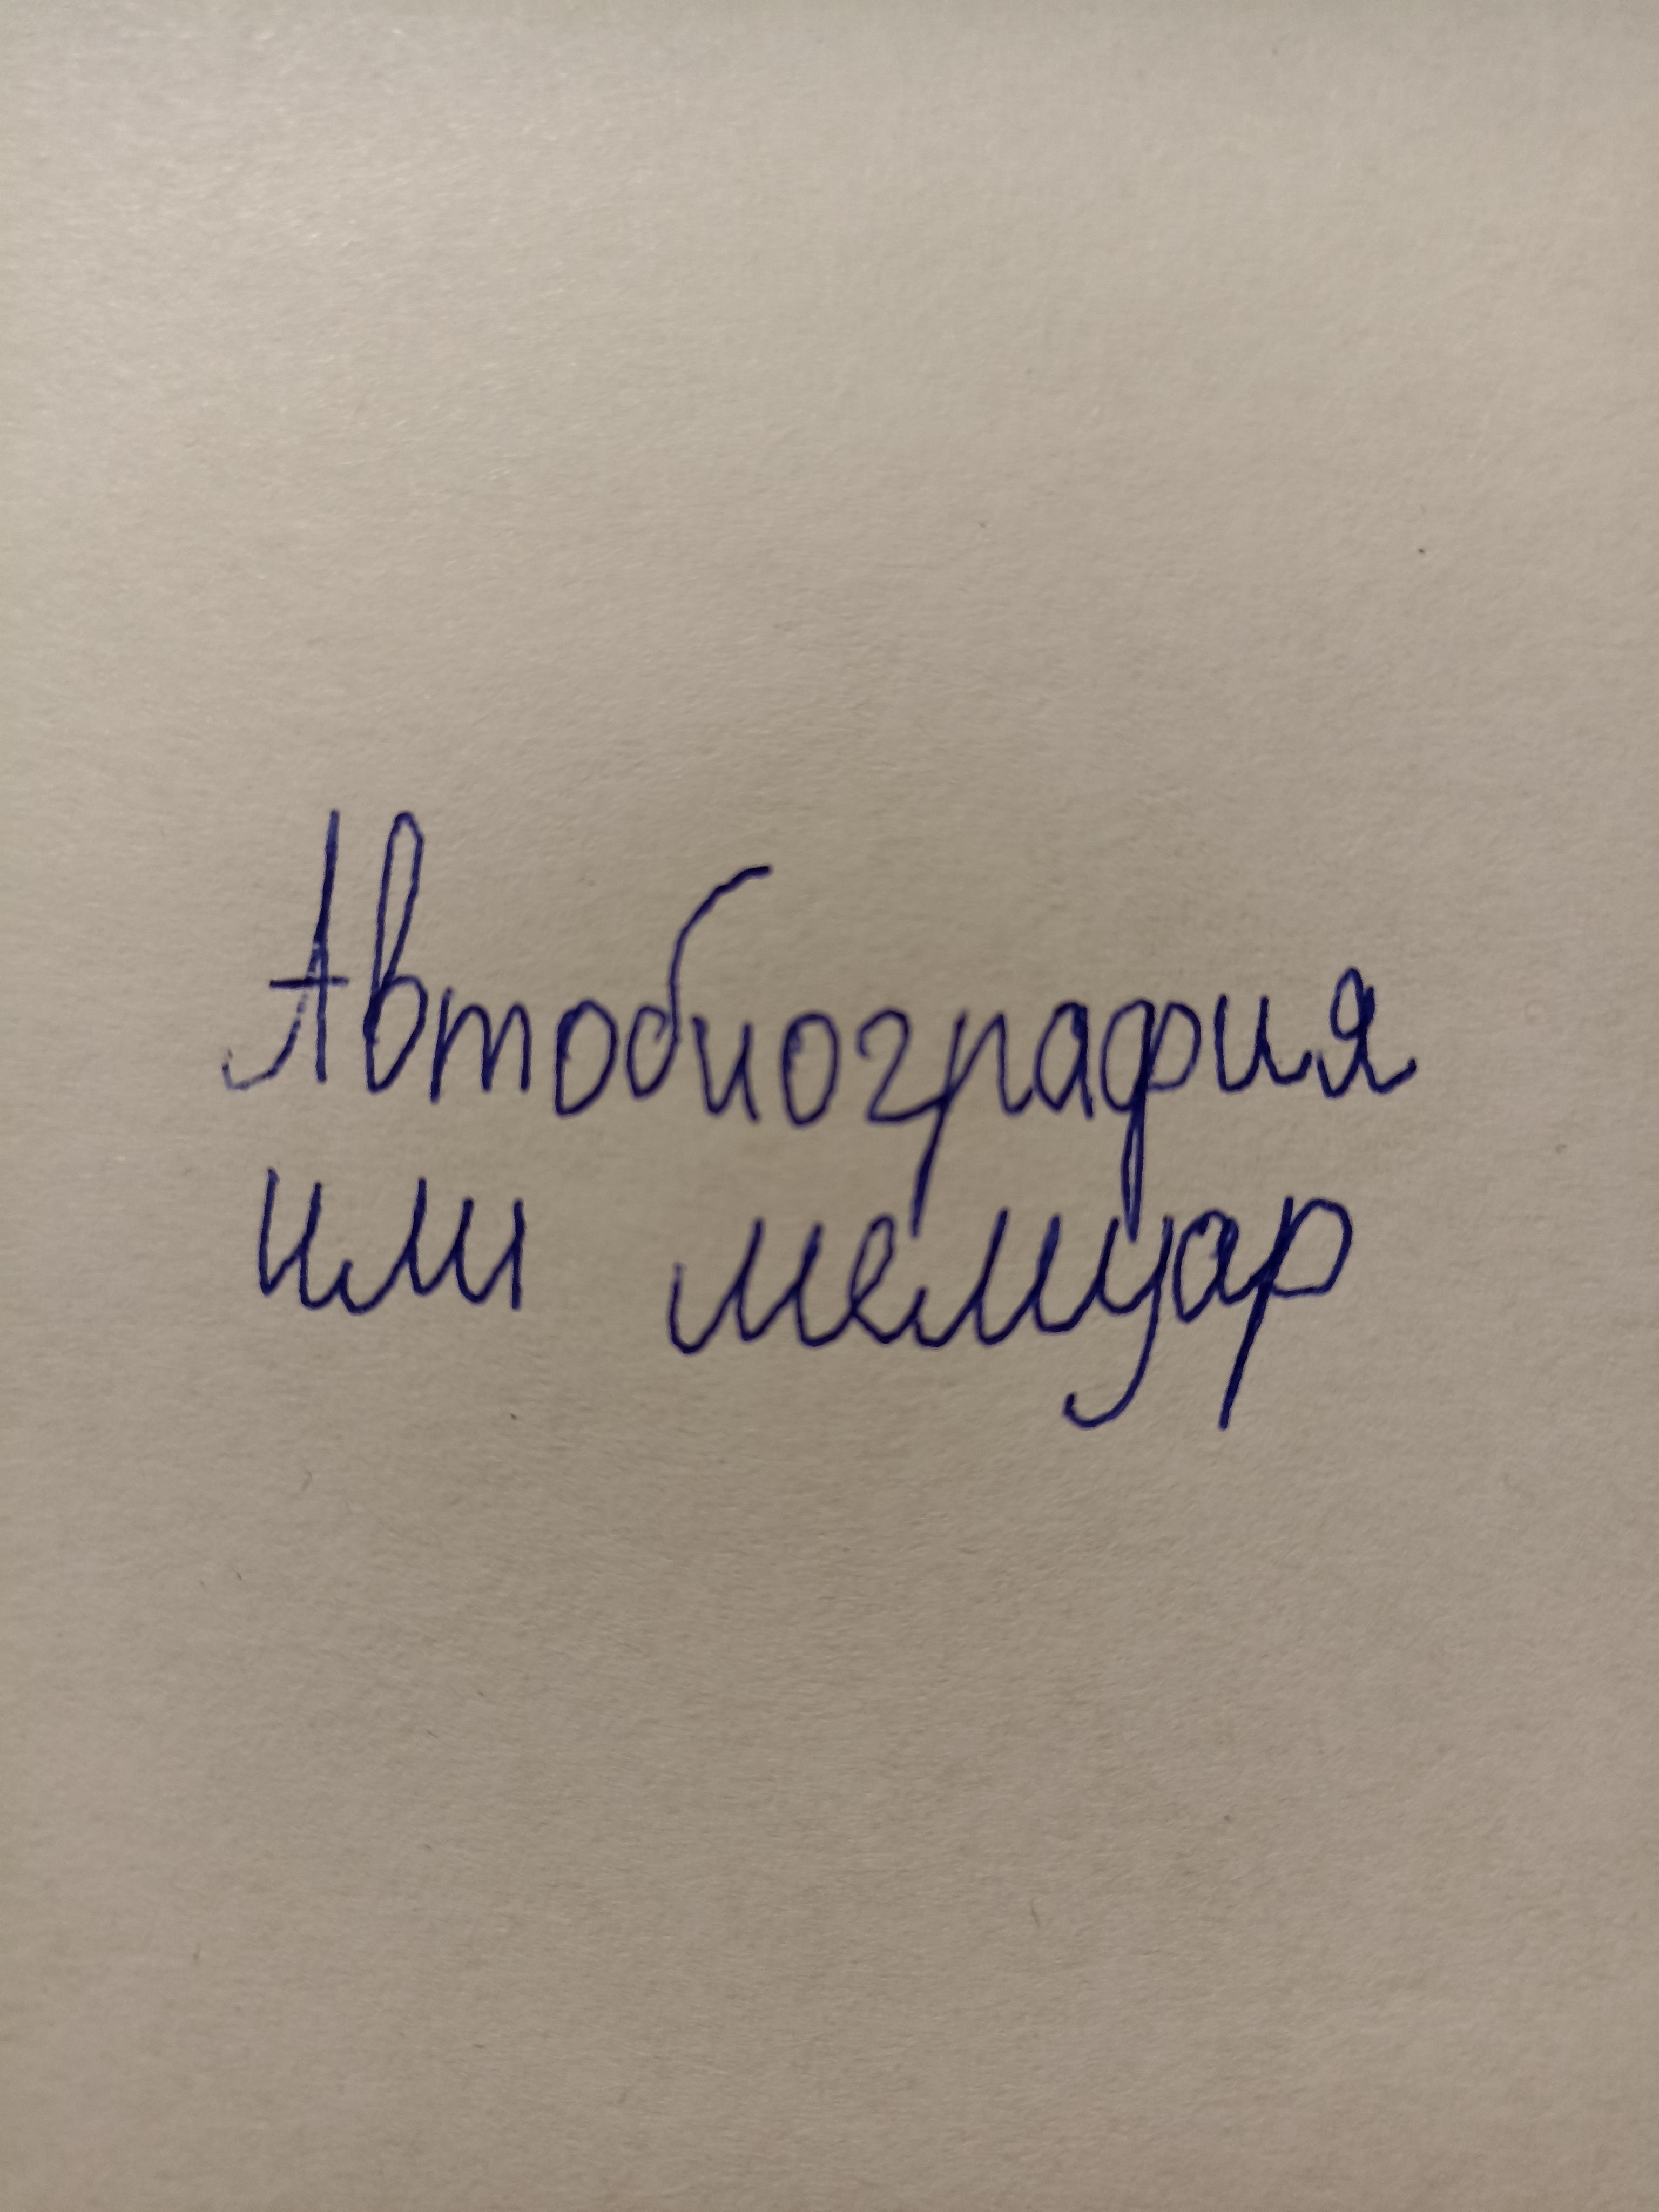 Автобиография
или мемуар